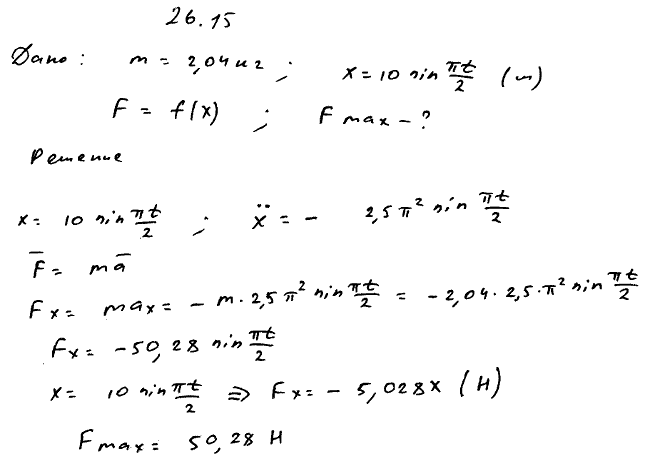 26.15
Дано: m = 2,04 кг; x = 10 sin πt/2 (м)
F = f(x); F max - ?
Решение
x = 10 sin πt/2; ẍ = - 2,5 π² sin πt/2
F̅ = ma̅
Fx = max = - m · 2,5 π² sin πt/2 = - 2,04 · 2,5 · π² sin πt/2
Fx = - 50,28 sin πt/2
x = 10 sin πt/2 ⇒ Fx = - 5,028x (Н)
Fmax = 50,28 Н